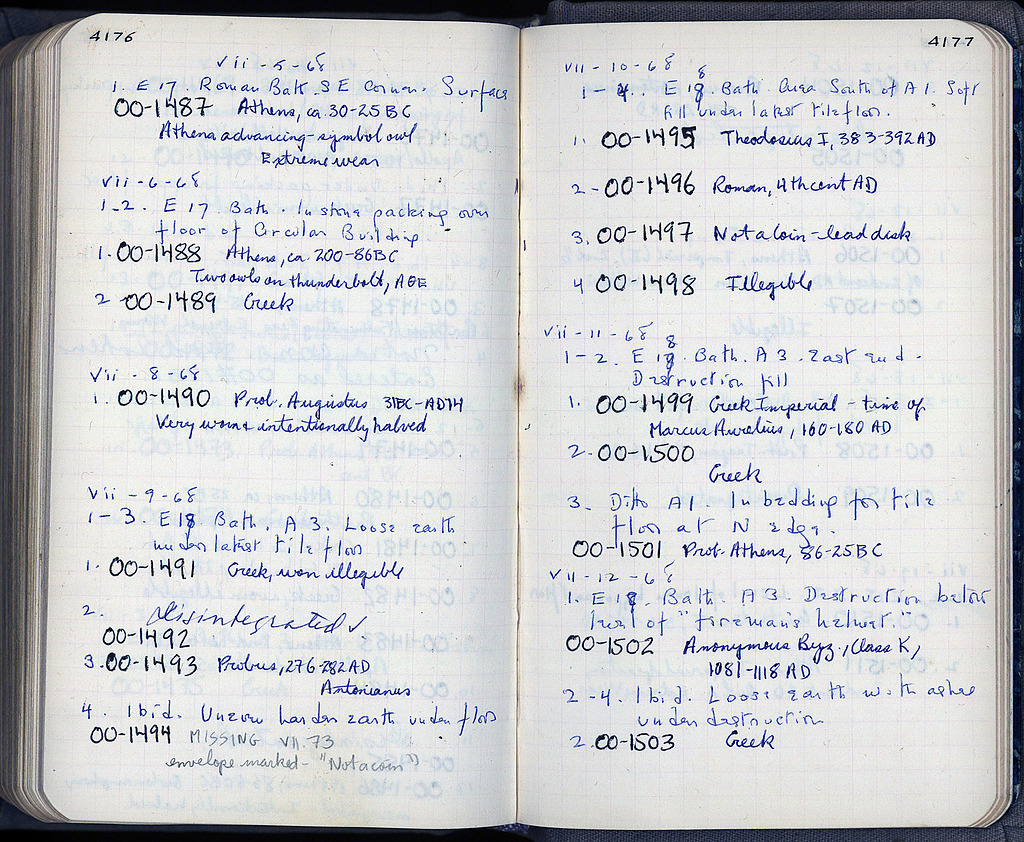 4176
vii - 5 - 68
1. E 17 Roman Bath. SE Corner. Surface
OO-1487 Athens, ca. 30-25 BC
Athena advancing - symbol owl
Extreme wear
vii - 6 - 68
1-2. E 17. Bath. In stone packing over
floor of Circular Building
1. OO-1488 Athens, ca. 200-86 BC
Two owls on thunderbolt, AΘE
2 OO-1489 Greek
vii - 8 - 68
1. OO-1490 Prob. Augustus 31BC-AD14
Very worn & intentionally halved
vii - 9 - 68
1-3. E 18 Bath. A 3. Loose earth
under latest tile floor
1. OO-1491 Greek, worn illegible
2. disintegrated ✓
OO-1492
3. OO-1493 Probus, 276-282 AD
Antonianus
4. Ibid. Uneven harder earth under floor
OO-1494 MISSING VII.73
envelope marked - "Not a coin"
4177
vii - 10 - 68
1-4. E 18 Bath Area South of A 1. Soft
fill under latest tile floor.
1. OO-1495 Theodosius I, 383-392 AD
2 - OO-1496 Roman, 4th cent AD
3. OO-1497 Not a coin - lead disk
4 OO-1498 Illegible
vii - 11 - 68
1-2. E 18. Bath. A 3. East end.
Destruction fill
1. OO-1499 Greek Imperial - time of
Marcus Aurelius, 160-180 AD
2. OO-1500
Greek
3. Ditto A 1. In bedding for tile
floor at N edge.
OO-1501 Prob. Athens, 86-25 BC
vii - 12 - 68
1. E 18. Bath A 3 Destruction below
level of "fireman's helmet".
OO-1502 Anonymous Byz., Class K,
1081-1118 AD
2-4. Ibid. Loose earth with ashes
under destruction
2. OO-1503 Greek